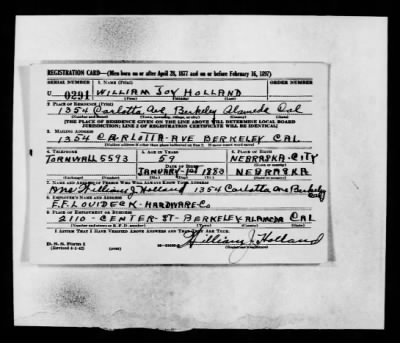 REGISTRATION CARD—(Men born on or after April 28, 1877 and on or before February 16, 1897)
SERIAL NUMBER 1. NAME (Print) ORDER NUMBER
U 0291 WILLIAM JOY HOLLAND
(First) (Middle) (Last)
2. PLACE OF RESIDENCE (Print)
1354 Carlotta Ave, Berkeley Alameda Cal
(Number and street) (Town, township, village, or city) (County) (State)
[THE PLACE OF RESIDENCE GIVEN ON THE LINE ABOVE WILL DETERMINE LOCAL BOARD
JURISDICTION; LINE 2 OF REGISTRATION CERTIFICATE WILL BE IDENTICAL]
3. MAILING ADDRESS
1354 CARLOTTA-AVE BERKELEY CAL.
4. TELEPHONE 5. AGE IN YEARS 6. PLACE OF BIRTH
59 NEBRASKA-CITY
DATE OF BIRTH
JANUARY-1st 1883 NEBRASKA
7. NAME AND ADDRESS OF PERSON WHO WILL ALWAYS KNOW YOUR ADDRESS
Mrs William J. Holland 1354 Carlotta Ave Berkeley Cal
8. EMPLOYER'S NAME AND ADDRESS
E.F. LOUIDECK-HARDWARE-Co
9. PLACE OF EMPLOYMENT OR BUSINESS
2110-CENTER-ST-BERKELEY ALAMEDA CAL
(Number and street or R. F. D. number) (Town) (County) (State)
I AFFIRM THAT I HAVE VERIFIED ABOVE ANSWERS AND THAT THEY ARE TRUE.
D. S. S. Form 1
(Revised 4-1-42)
William J. Holland
(Registrant's signature)